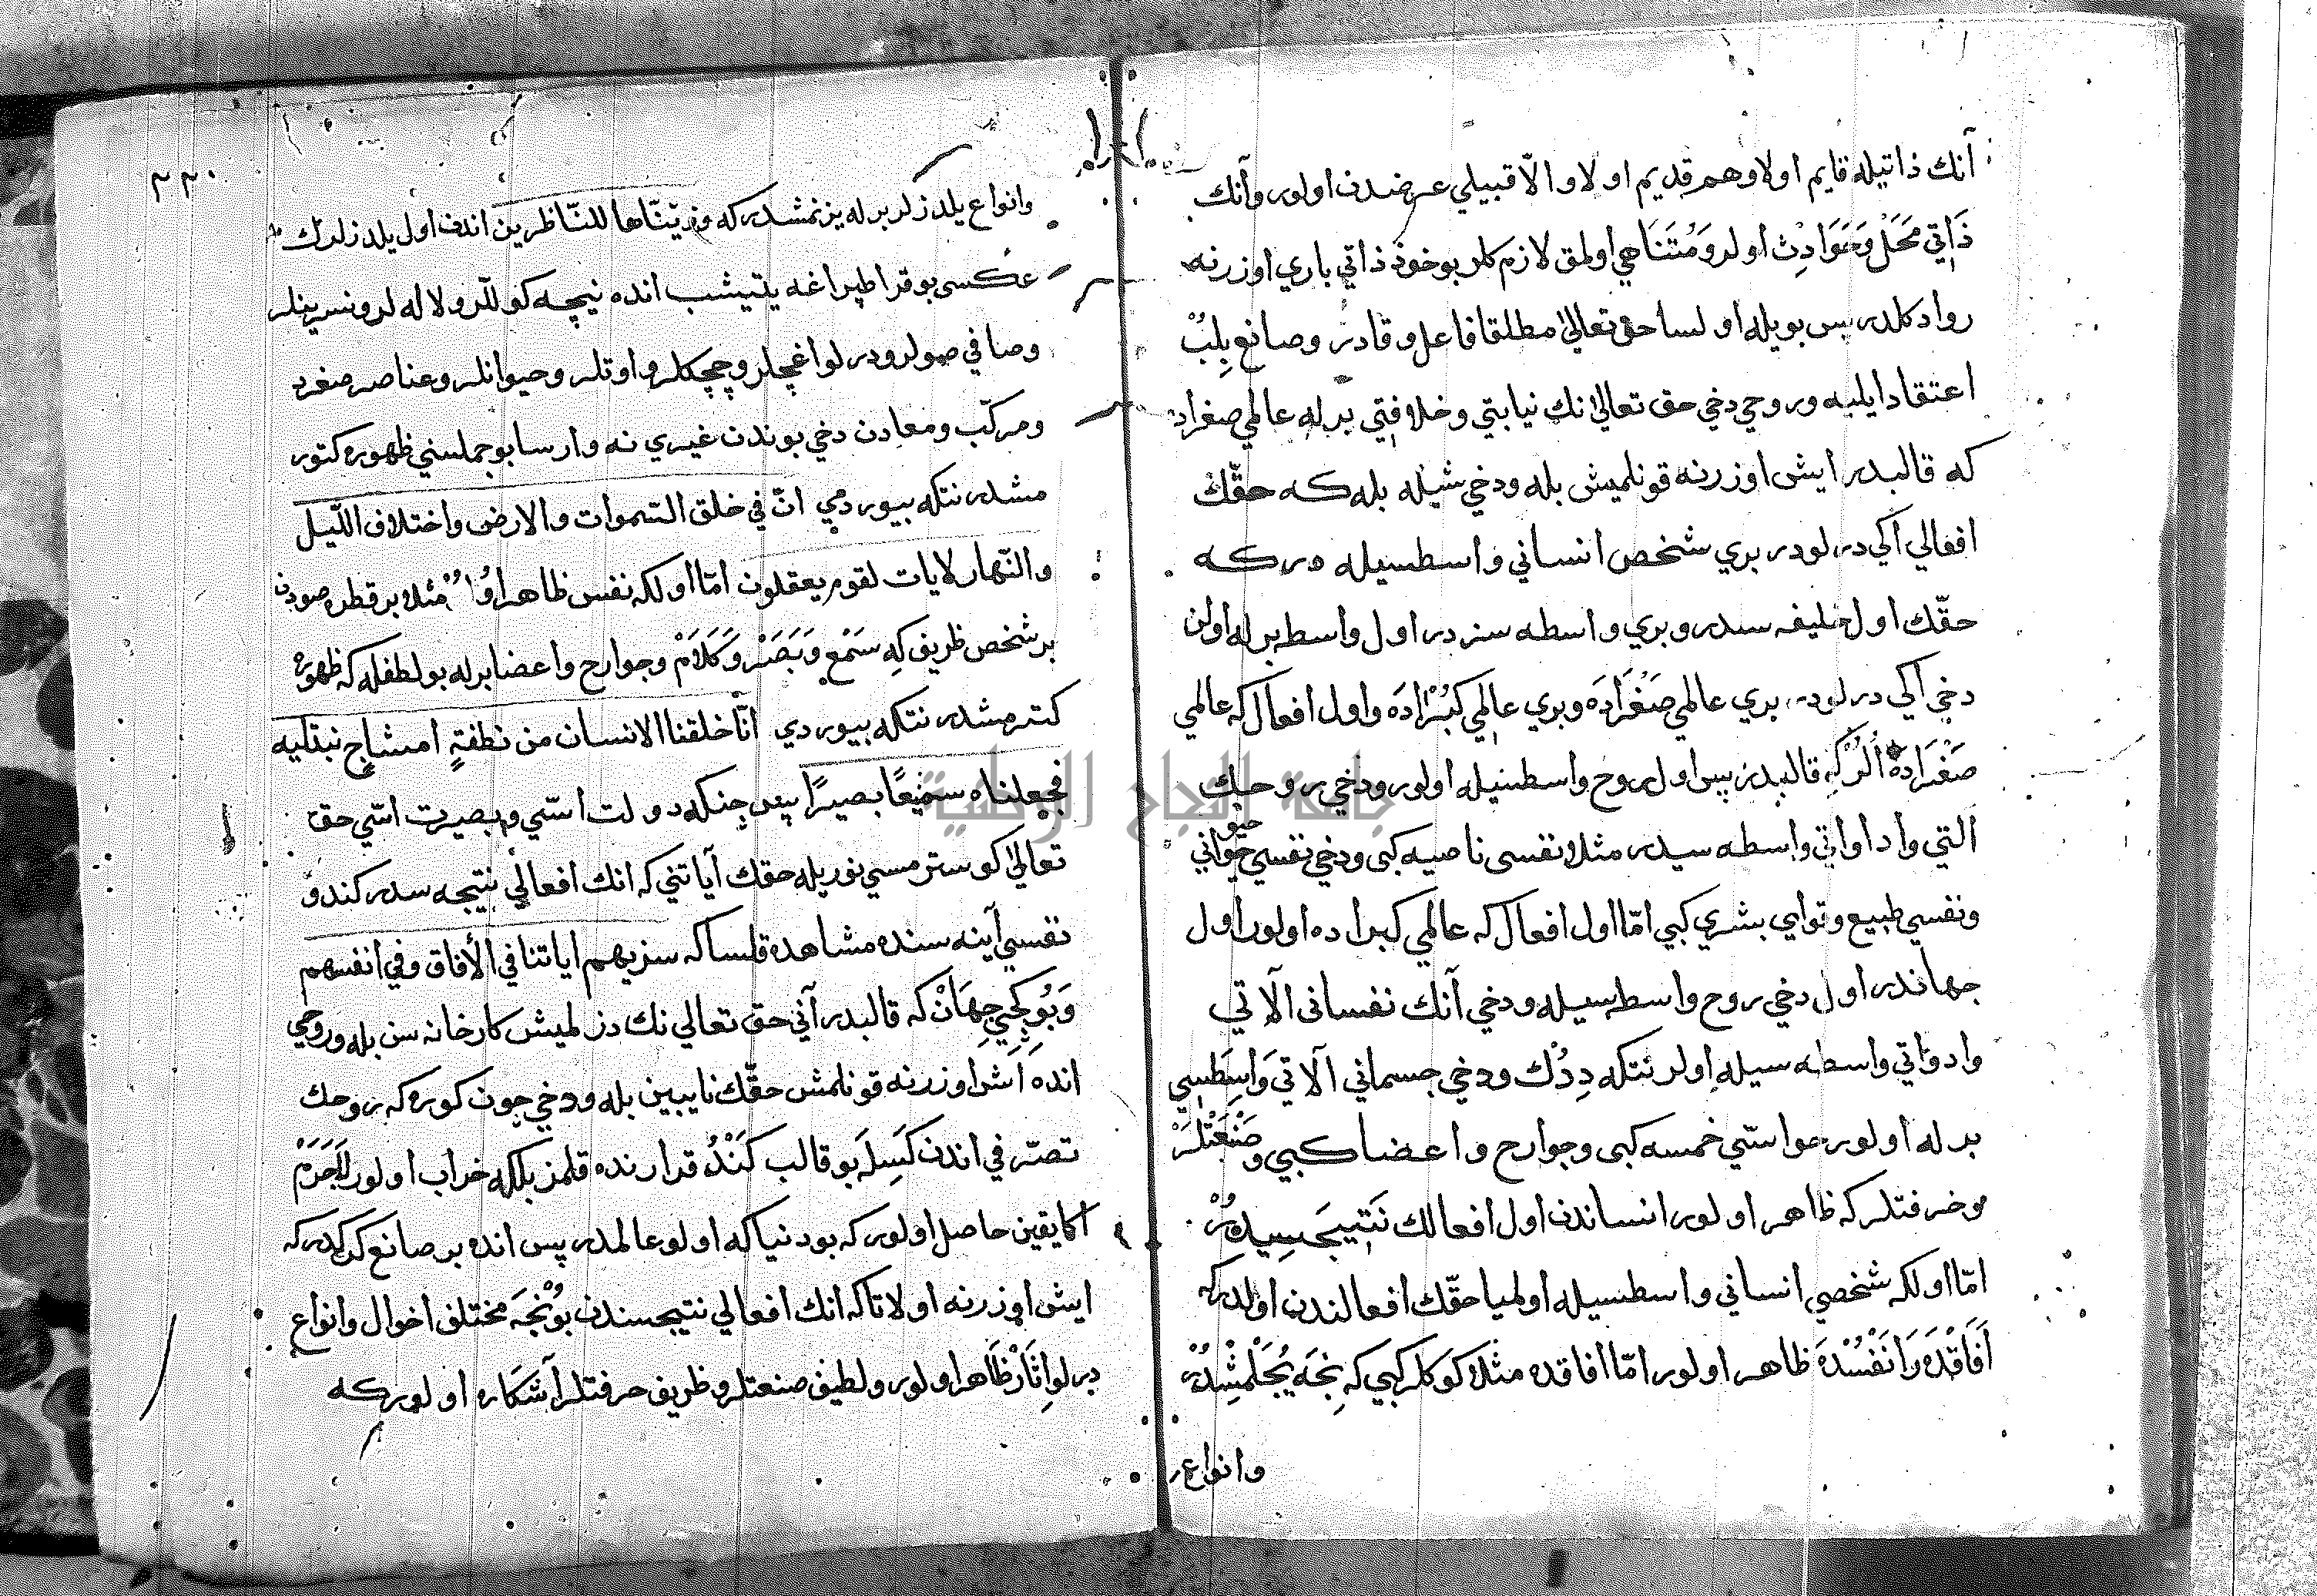 آنك ذاتيله قايم اولا وهم قديم اولا والّا قبيلي عرضدن اولور وأنك
ذَاتِي مَحَلْ وَحَوَادِث اولر وَمُتَنَاهِي اولمق لازم كلر بو خوذ ذاتي باري اوزرنه
روا دكلدر پس بويله اولسا حق تعالى مطلقا فاعل و قادر وصانع بِلِبْ
اعتقاد ايليه وروحي دخي حق تعالى انك نيابتي وخلافتي برله عالمي صغراد
كه قالبدر ايش اوزرنه قونلميش بله ودخي شيله بله كه حقّك
افعالي اكي درلودر بري شخص انساني واسطسيله دركه
حقّك اول خليفه سدر وبري واسطه سزدر اول واسطه برله اولن
دخي اكي درلودر بري عالمي صَغْرَادَه وبري عالمِي كُبْرَادَه واول افعال كه عالمي
صَغْرَادَه الُرْ كه قالبدر پس اول روح واسطسيله اولور ودخي روحك
التي وادواتي واسطه سيدر مثلا نفسى ناميه كبى ودخي نفسي حيواني
ونفسي طبيع وقواي بشري كبي امّا اول افعال كه عالمي كبراده اولور اول
جهاندر اول دخي روح واسطه سيله ودخي آنك نفسانى الآتي
وادواتي واسطه سيله اولر نتكه دِدُك ودخي جسماني الآتي وَاسِطَسِي
برله اولور حواسّي خمسه كبى وجوارح واعضا كبي وصَنْعَتْلَرْ
وحرفتلر كه ظاهر اولور انساندن اول افعالك نَتِيجَسِيدُرْ
امّا اولكه شخصي انساني واسطسيله اولميا حقّك افعالندن اولدركه
اَفَاقْدَه وَاَنْفُسْدَه ظاهر اولور امّا افاقده مثلا كوكلر كبي كه نِجَه يُجَلْمِشْدُرْ
وانواع
٢٢٠
وانواع يلدزلر برله بزنمشدر كه وزيّنّاها للنّاظرين اندن اول يلدزلرك
عكسى بو قرا طپراغه يتيشب انده نيچه كوللر ولاله لر ونسرينلر
وصافي صولر ودرلو اغچلر وچچكلر واوتلر وحيوانلر وعناصر مفرد
ومركّب ومعادن دخي بوندن غيري نه وارسا بو جملسني ظهوره كتور
مشدر نتكه بيوردي انّ في خلق السّموات والارض واختلاف اللّيل
والنّهار لايات لقوم يعقلون امّا اولكه نفس ظاهر اولُر مثلا بر قطره صودن
بر شخص ظريف كه سَمْع وَبَصَرْ وَكَلَامْ وجوارح واعضا برله بو لطفله كه ظهوره
كترمشدر نتكه بيوردي انّا خلقنا الانسان من نطفةٍ امشاجٍ نبتليه
فجعلناه سميعًا بصيرًا پس چنكه دولت اسّي وبصيرت اسّي حق
تعالى كوسترمسي نوريله حقك آياتني كه انك افعالي نتيجه سدر كندو
نفسي آينه سنده مشاهده قلسا كه سنريهم اياتنا في الأفاق وفي انفسهم
وَبُو كِچِي جِهَانْ كه قالبدر آني حق تعالي نك دزلميش كارخانه سن بله وروحي
انده اَش اوزرنه قونلمش حقّك نايبين بله ودخي چون كوره كه روحك
تصرّفي اندن كَسِلَ بو قالب كَنْدُ قرارنده قلمز بلكه خراب اولور لاجَرَمْ
اكا يقين حاصل اولور كه بو دنيا كه اولو عالمدر پس انده بر صانع كركدر كه
ايش اوزرنه اولا تا كه انك افعالي نتيجسندن بُونْجَه مختلف احوال وانواع
درلو اثَارْ ظَاهر اولور ولطيف صنعتلر وظريف حرفتلر آشكاره اولور كه